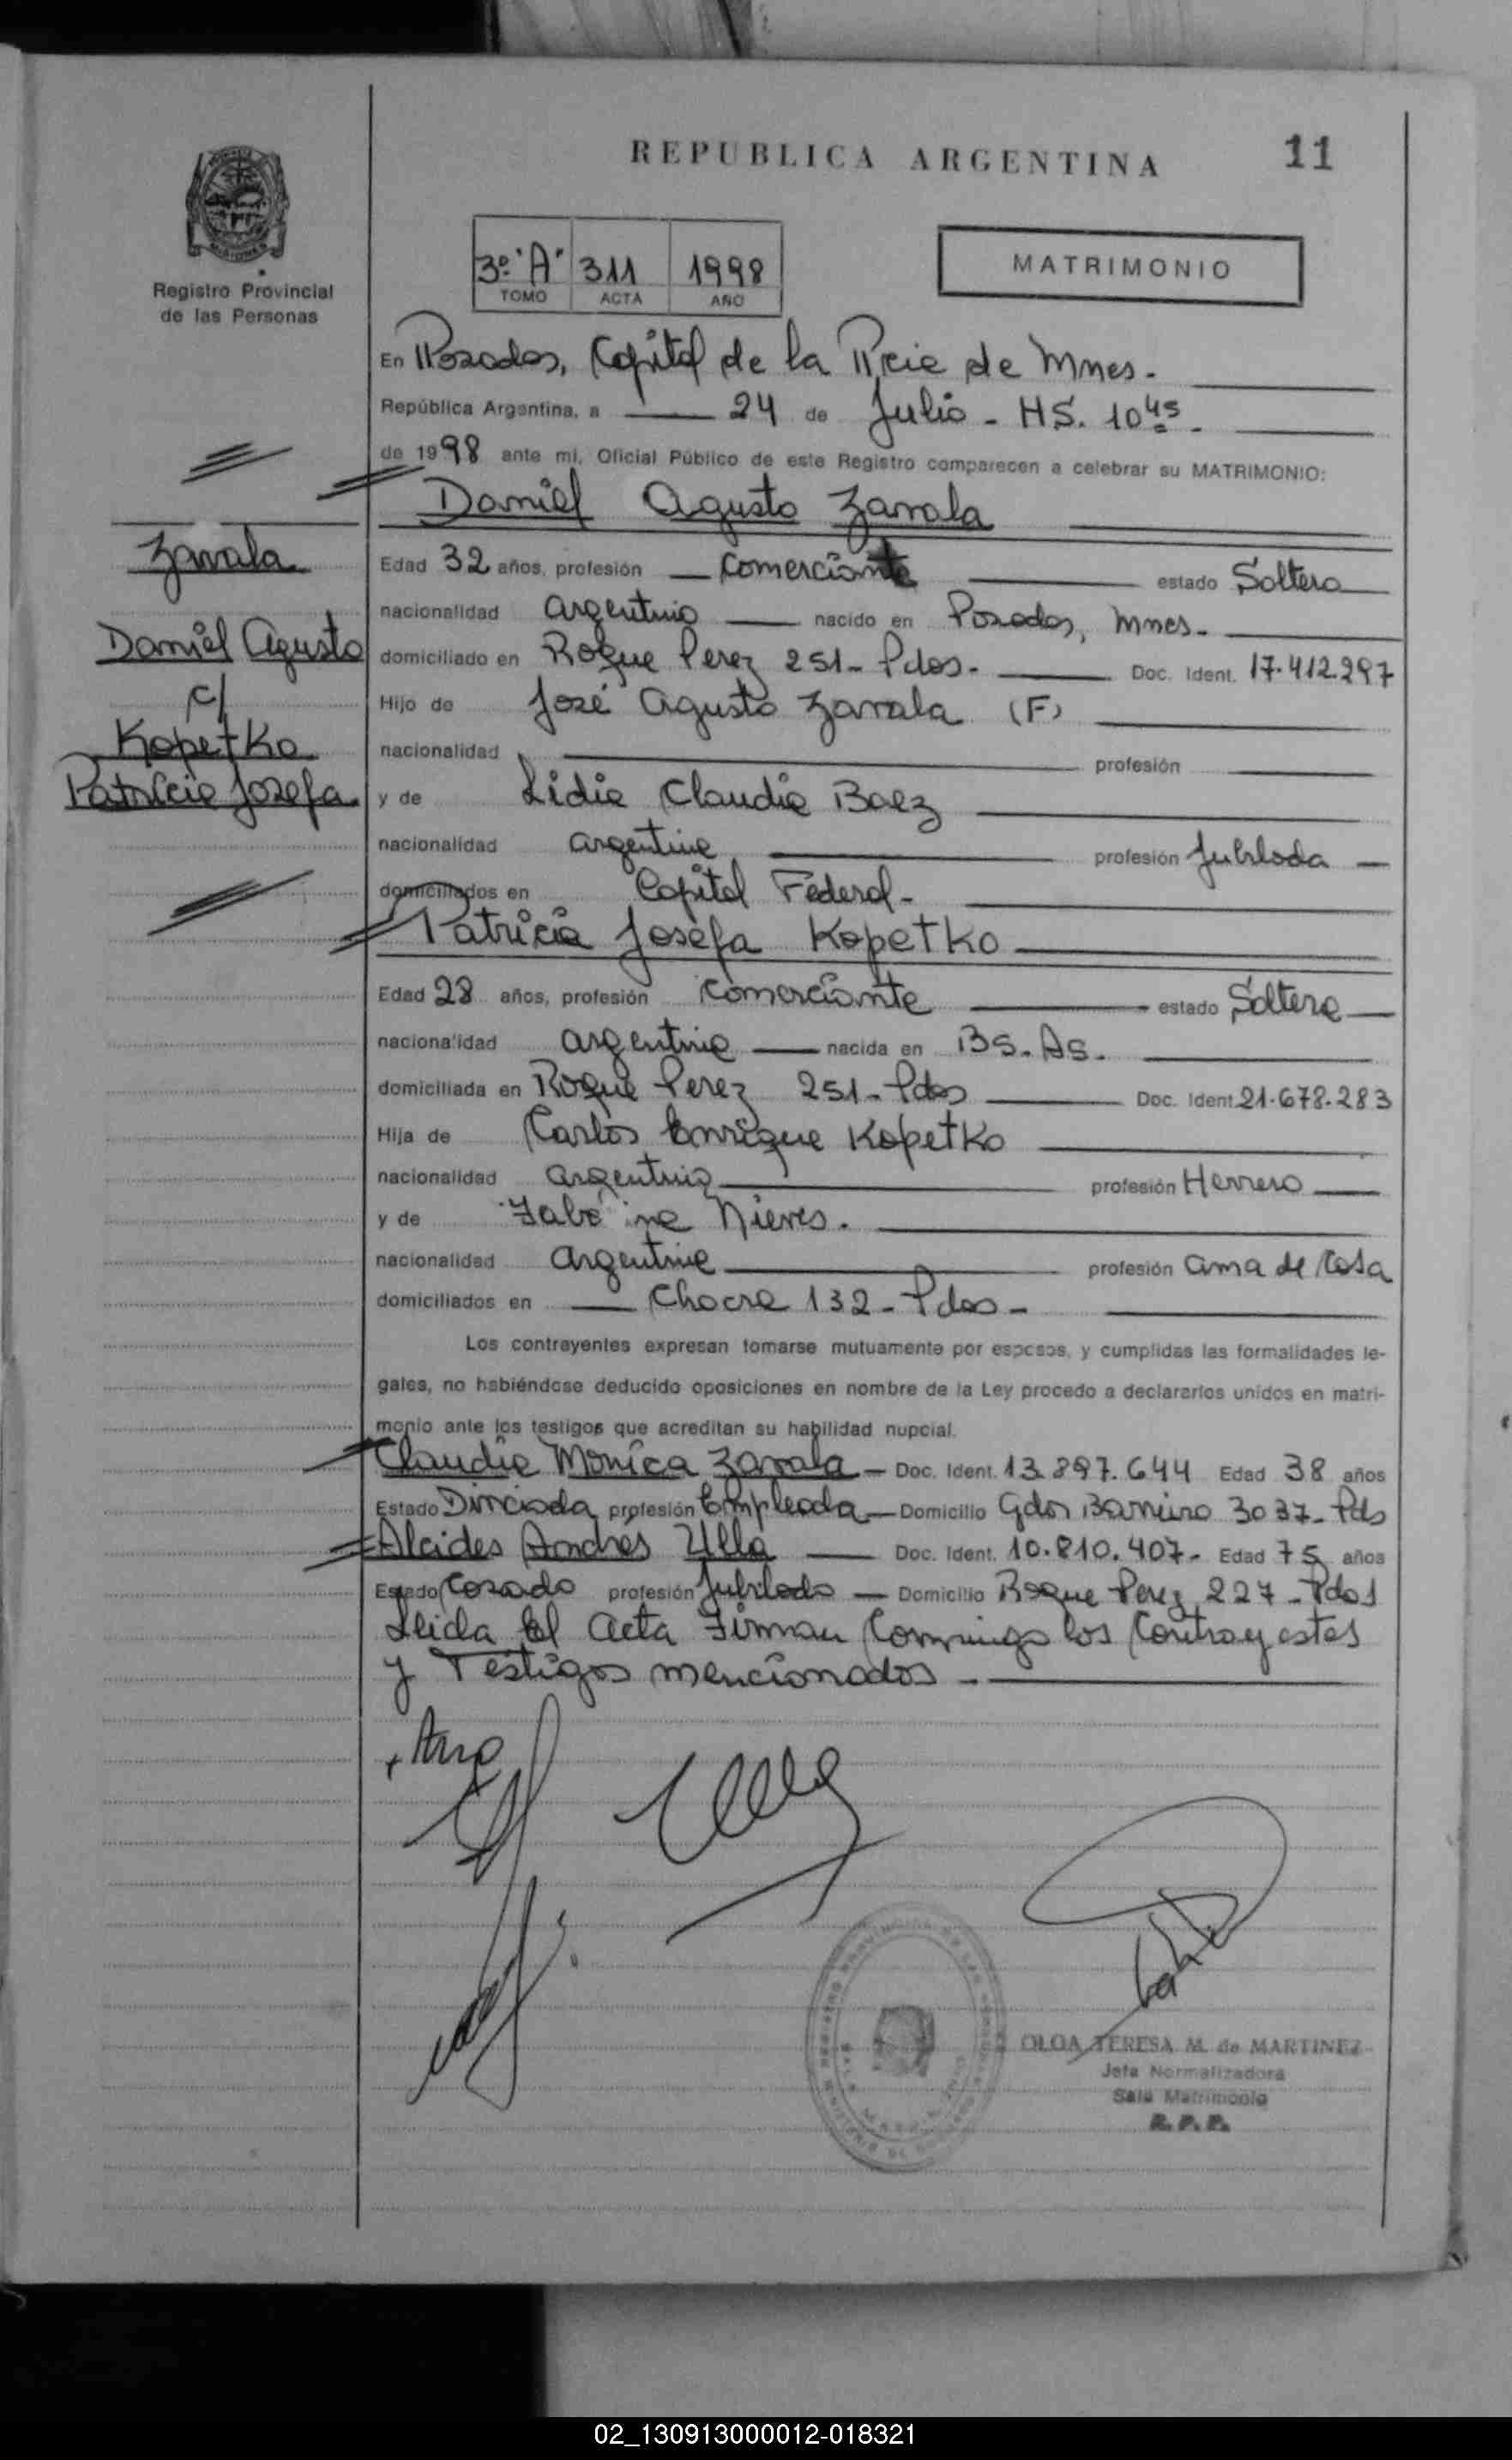 REPUBLICA ARGENTINA
11
3º "A" 311 1998
TOMO ACTA AÑO
MATRIMONIO
Registro Provincial
de las Personas
En Posadas, Capital de la Pcia de Mnes.
República Argentina, a 24 de Julio - HS. 10 45.
de 1998 ante mí, Oficial Público de este Registro comparecen a celebrar su MATRIMONIO:
Daniel Agusto Zavala
Zavala
Daniel Agusto
c/
Kopetko
Patricia Josefa.
Edad 32 años, profesión Comerciante estado Soltero
nacionalidad argentino nacido en Posadas, Mnes.
domiciliado en Roque Perez 251 - Pdas. Doc. Ident. 17.412.297
Hijo de José Agusto Zavala (F)
nacionalidad profesión
y de Lidia Claudia Baez
nacionalidad argentina profesión Jubilada
domiciliados en Capital Federal.
Patricia Josefa Kopetko
Edad 28 años, profesión Comerciante estado Soltera
nacionalidad argentina nacida en Bs. As.
domiciliada en Roque Perez 251 - Pdas Doc. Ident. 21.678.283
Hija de Carlos Enrique Kopetko
nacionalidad argentino profesión Herrero
y de Nieves.
nacionalidad argentina profesión ama de Casa
domiciliados en 132 - Pdas -
Los contrayentes expresan tomarse mutuamente por esposos, y cumplidas las formalidades le-
gales, no habiéndose deducido oposiciones en nombre de la Ley procedo a declararlos unidos en matri-
monio ante los testigos que acreditan su habilidad nupcial.
Claudia Mónica Zavala - Doc. Ident. 13.897.644 Edad 38 años
Estado Divorciada profesión Empleada - Domicilio Gdor Barreiro 3037 - Pds
Alcides Andrés Ulla Doc. Ident. 10.810.407 - Edad 75 años
Estado Casado profesión Jubilado - Domicilio Roque Perez 227 - Pdas
Leida el Acta Firman Conmigo los
y Testigos mencionados -
OLGA TERESA M. de MARTINEZ
Jefa Normalizadora
Sala Matrimonio
R. P. P.
02_130913000012-018321